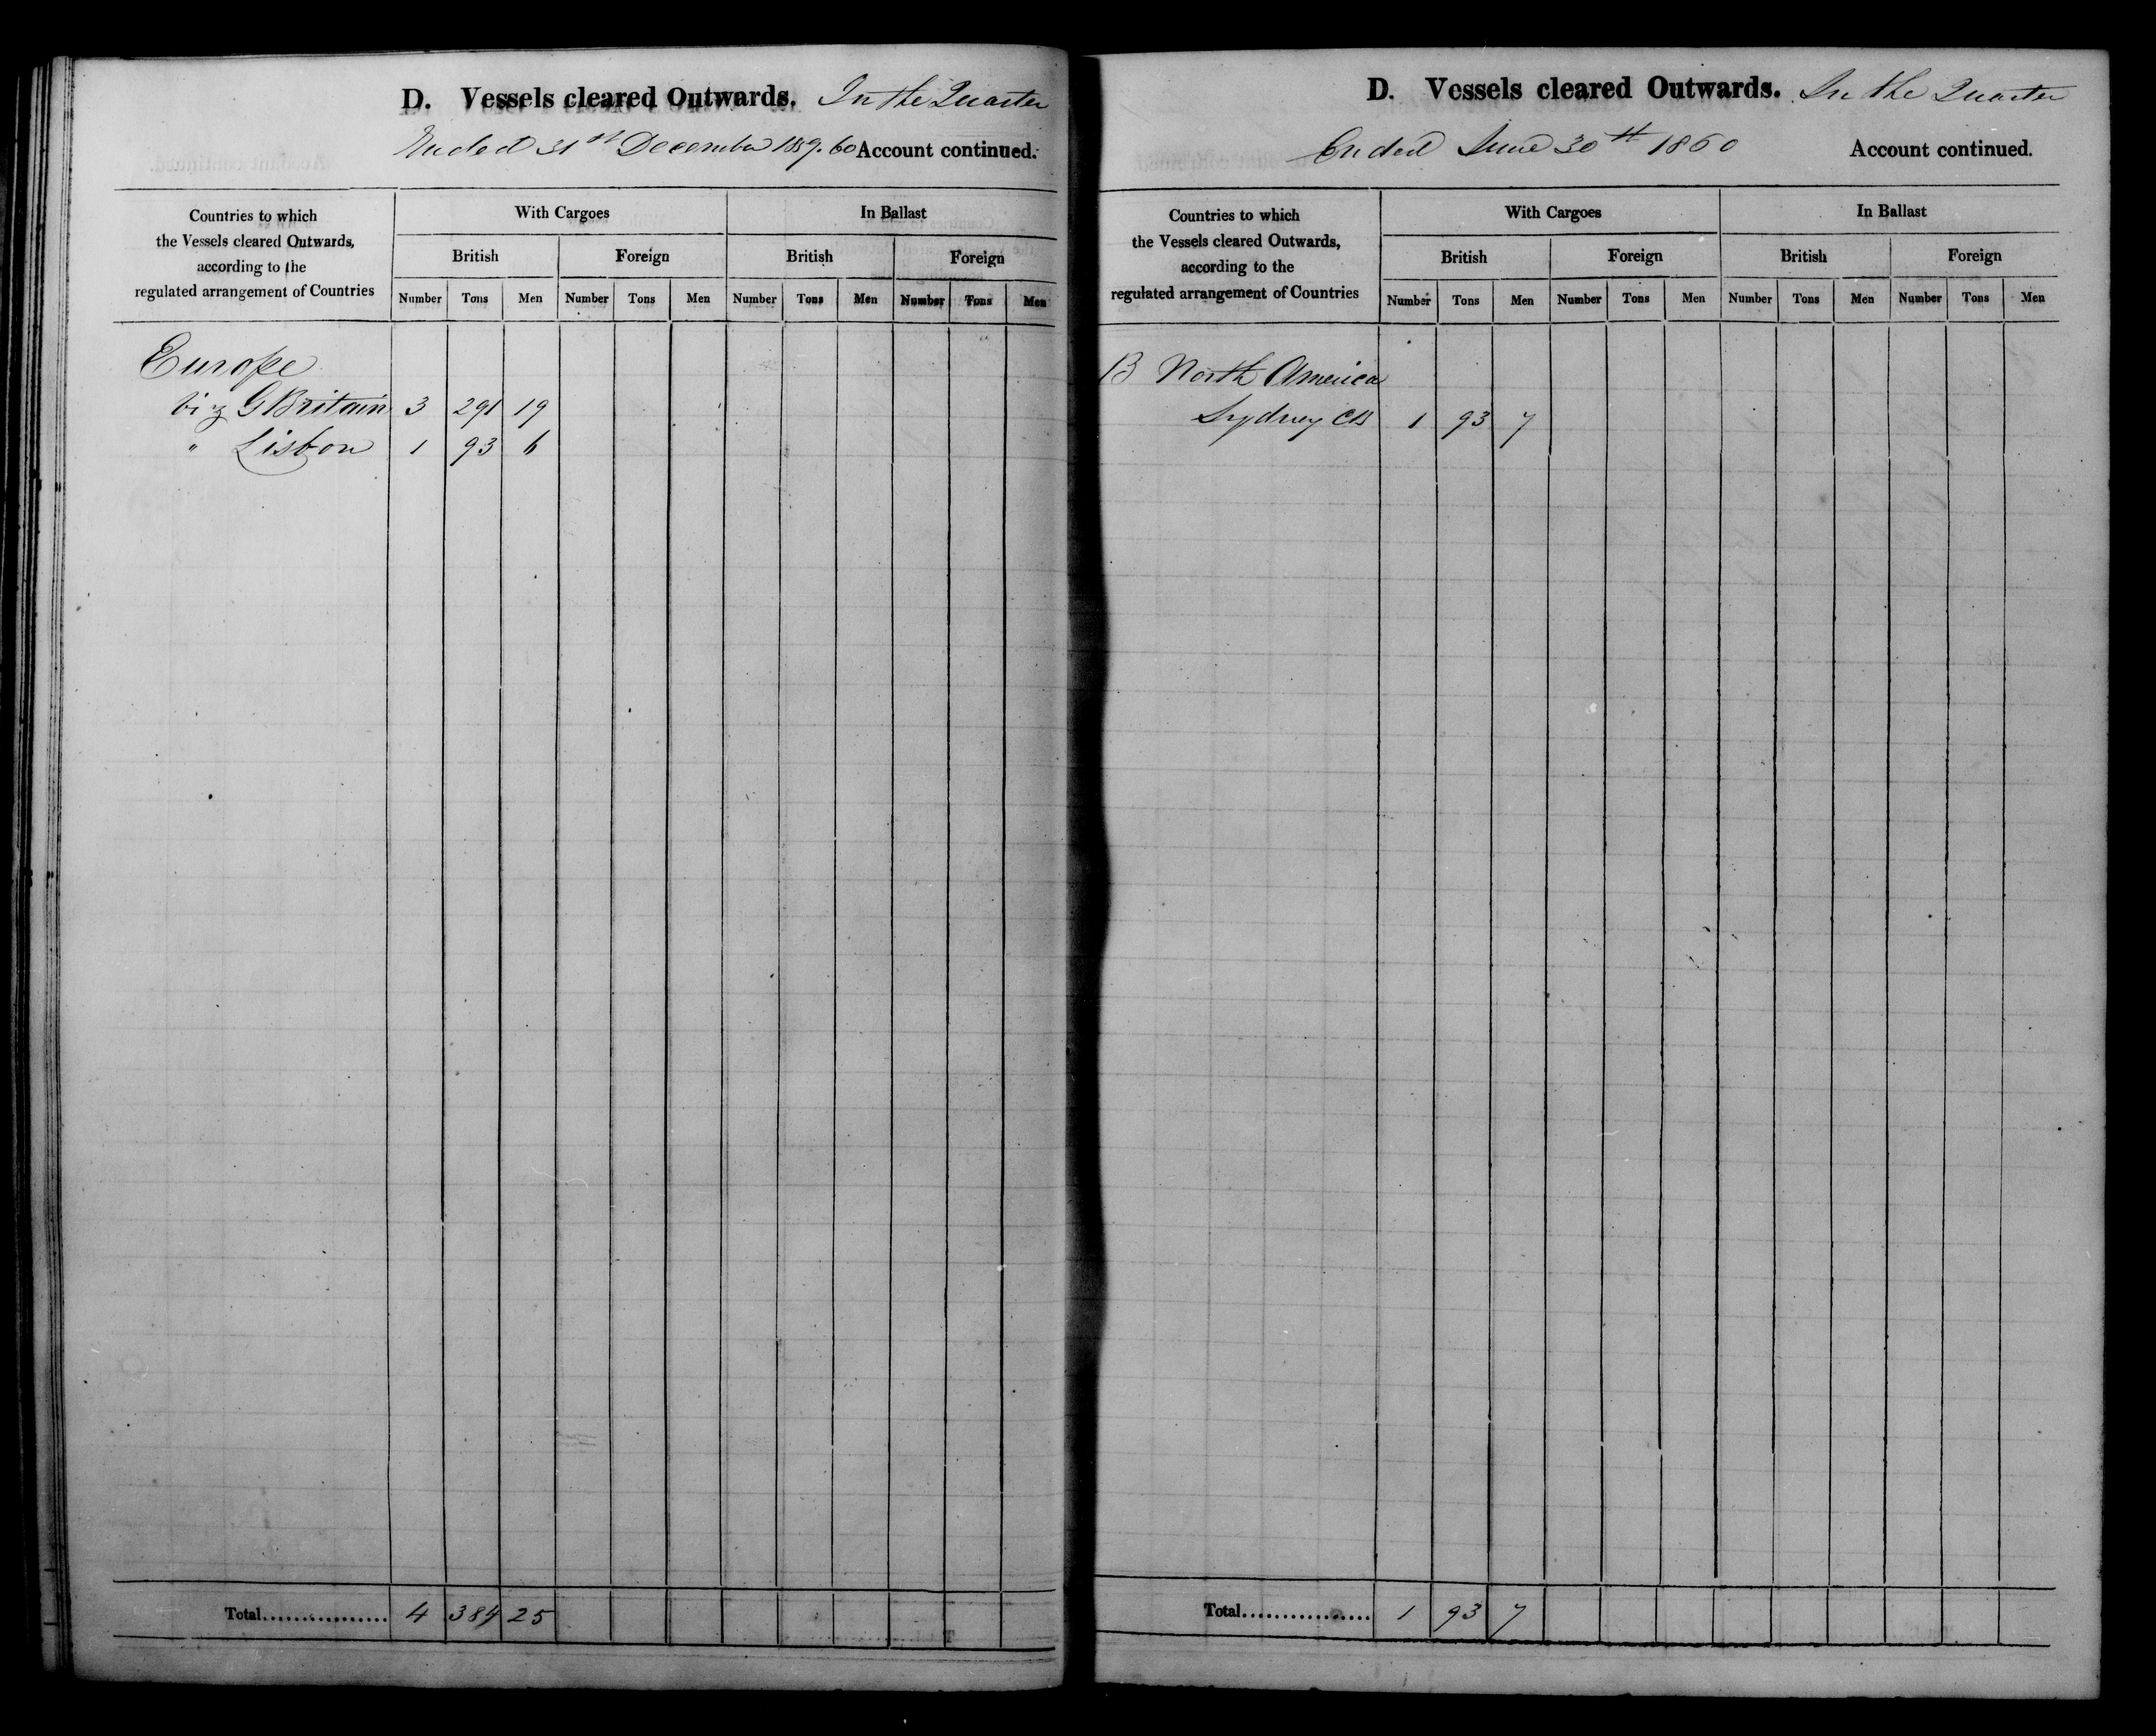 D. Vessels cleared Outwards. In the Quarter
Ended 31st December 1859.60 Account continued.
Countries to which
the Vessels cleared Outwards,
according to the
regulated arrangement of Countries
With Cargoes In Ballast
British Foreign British Foreign
Number Tons Men Number Tons Men Number Tons Men Number Tons Men
Europe
viz G Britain 3 291 19
" Lisbon 1 93 6
Total................ 4 384 25
D. Vessels cleared Outwards. In the Quarter
Ended June 30th 1860 Account continued.
Countries to which
the Vessels cleared Outwards,
according to the
regulated arrangement of Countries
With Cargoes In Ballast
British Foreign British Foreign
Number Tons Men Number Tons Men Number Tons Men Number Tons Men
B North America
Sydney CB 1 93 7
Total................ 1 93 7